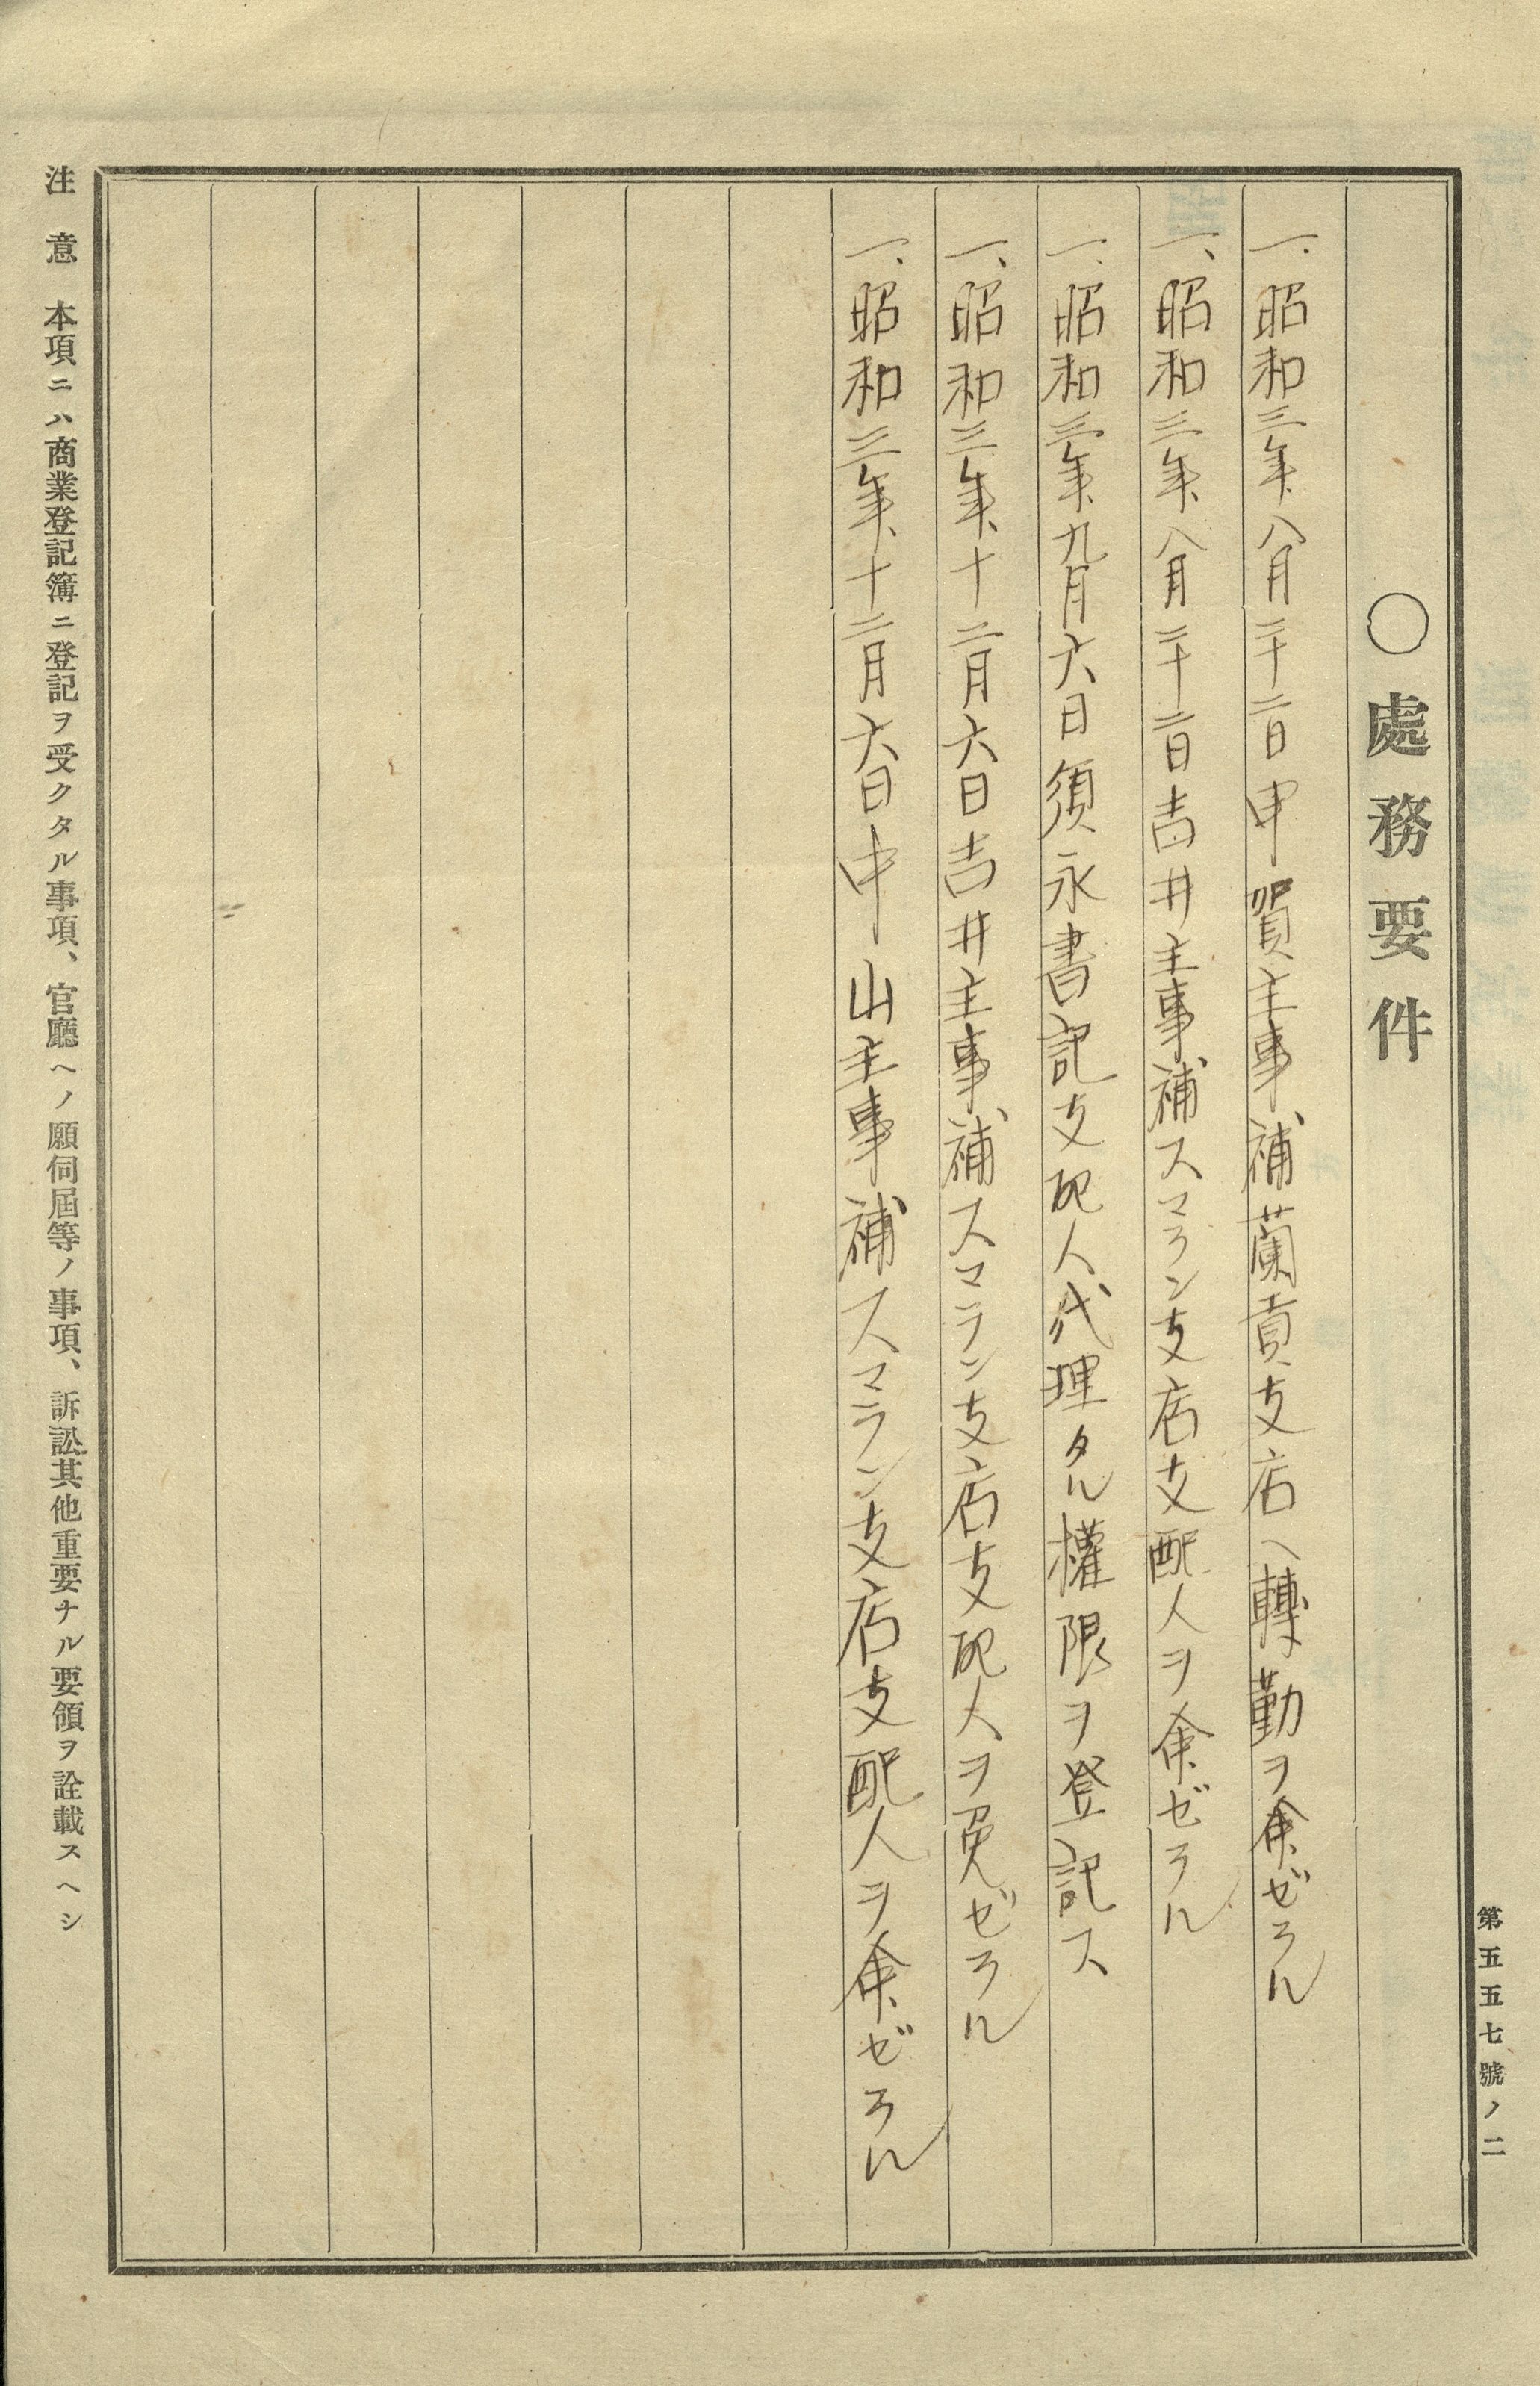 第五五七號ノ二
○處務要件
一、昭和三年八月二十二日中賀主事補蘭貢支店ヘ轉勤ヲ命ゼラル
一、昭和三年八月二十二日吉井主事補スマラン支店支配人ヲ命ゼラル
一、昭和三年九月六日須永書記支配人代理タル權限ヲ登記ス
一、昭和三年十二月六日吉井主事補スマラン支店支配人ヲ免ゼラル
一、昭和三年十二月六日中山主事補スマラン支店支配人ヲ命ゼラル
注意 本項ニハ商業登記簿ニ登記ヲ受クタル事項、官廳ヘノ願伺屆等ノ事項、訴訟其他重要ナル要領ヲ詮載スヘシ